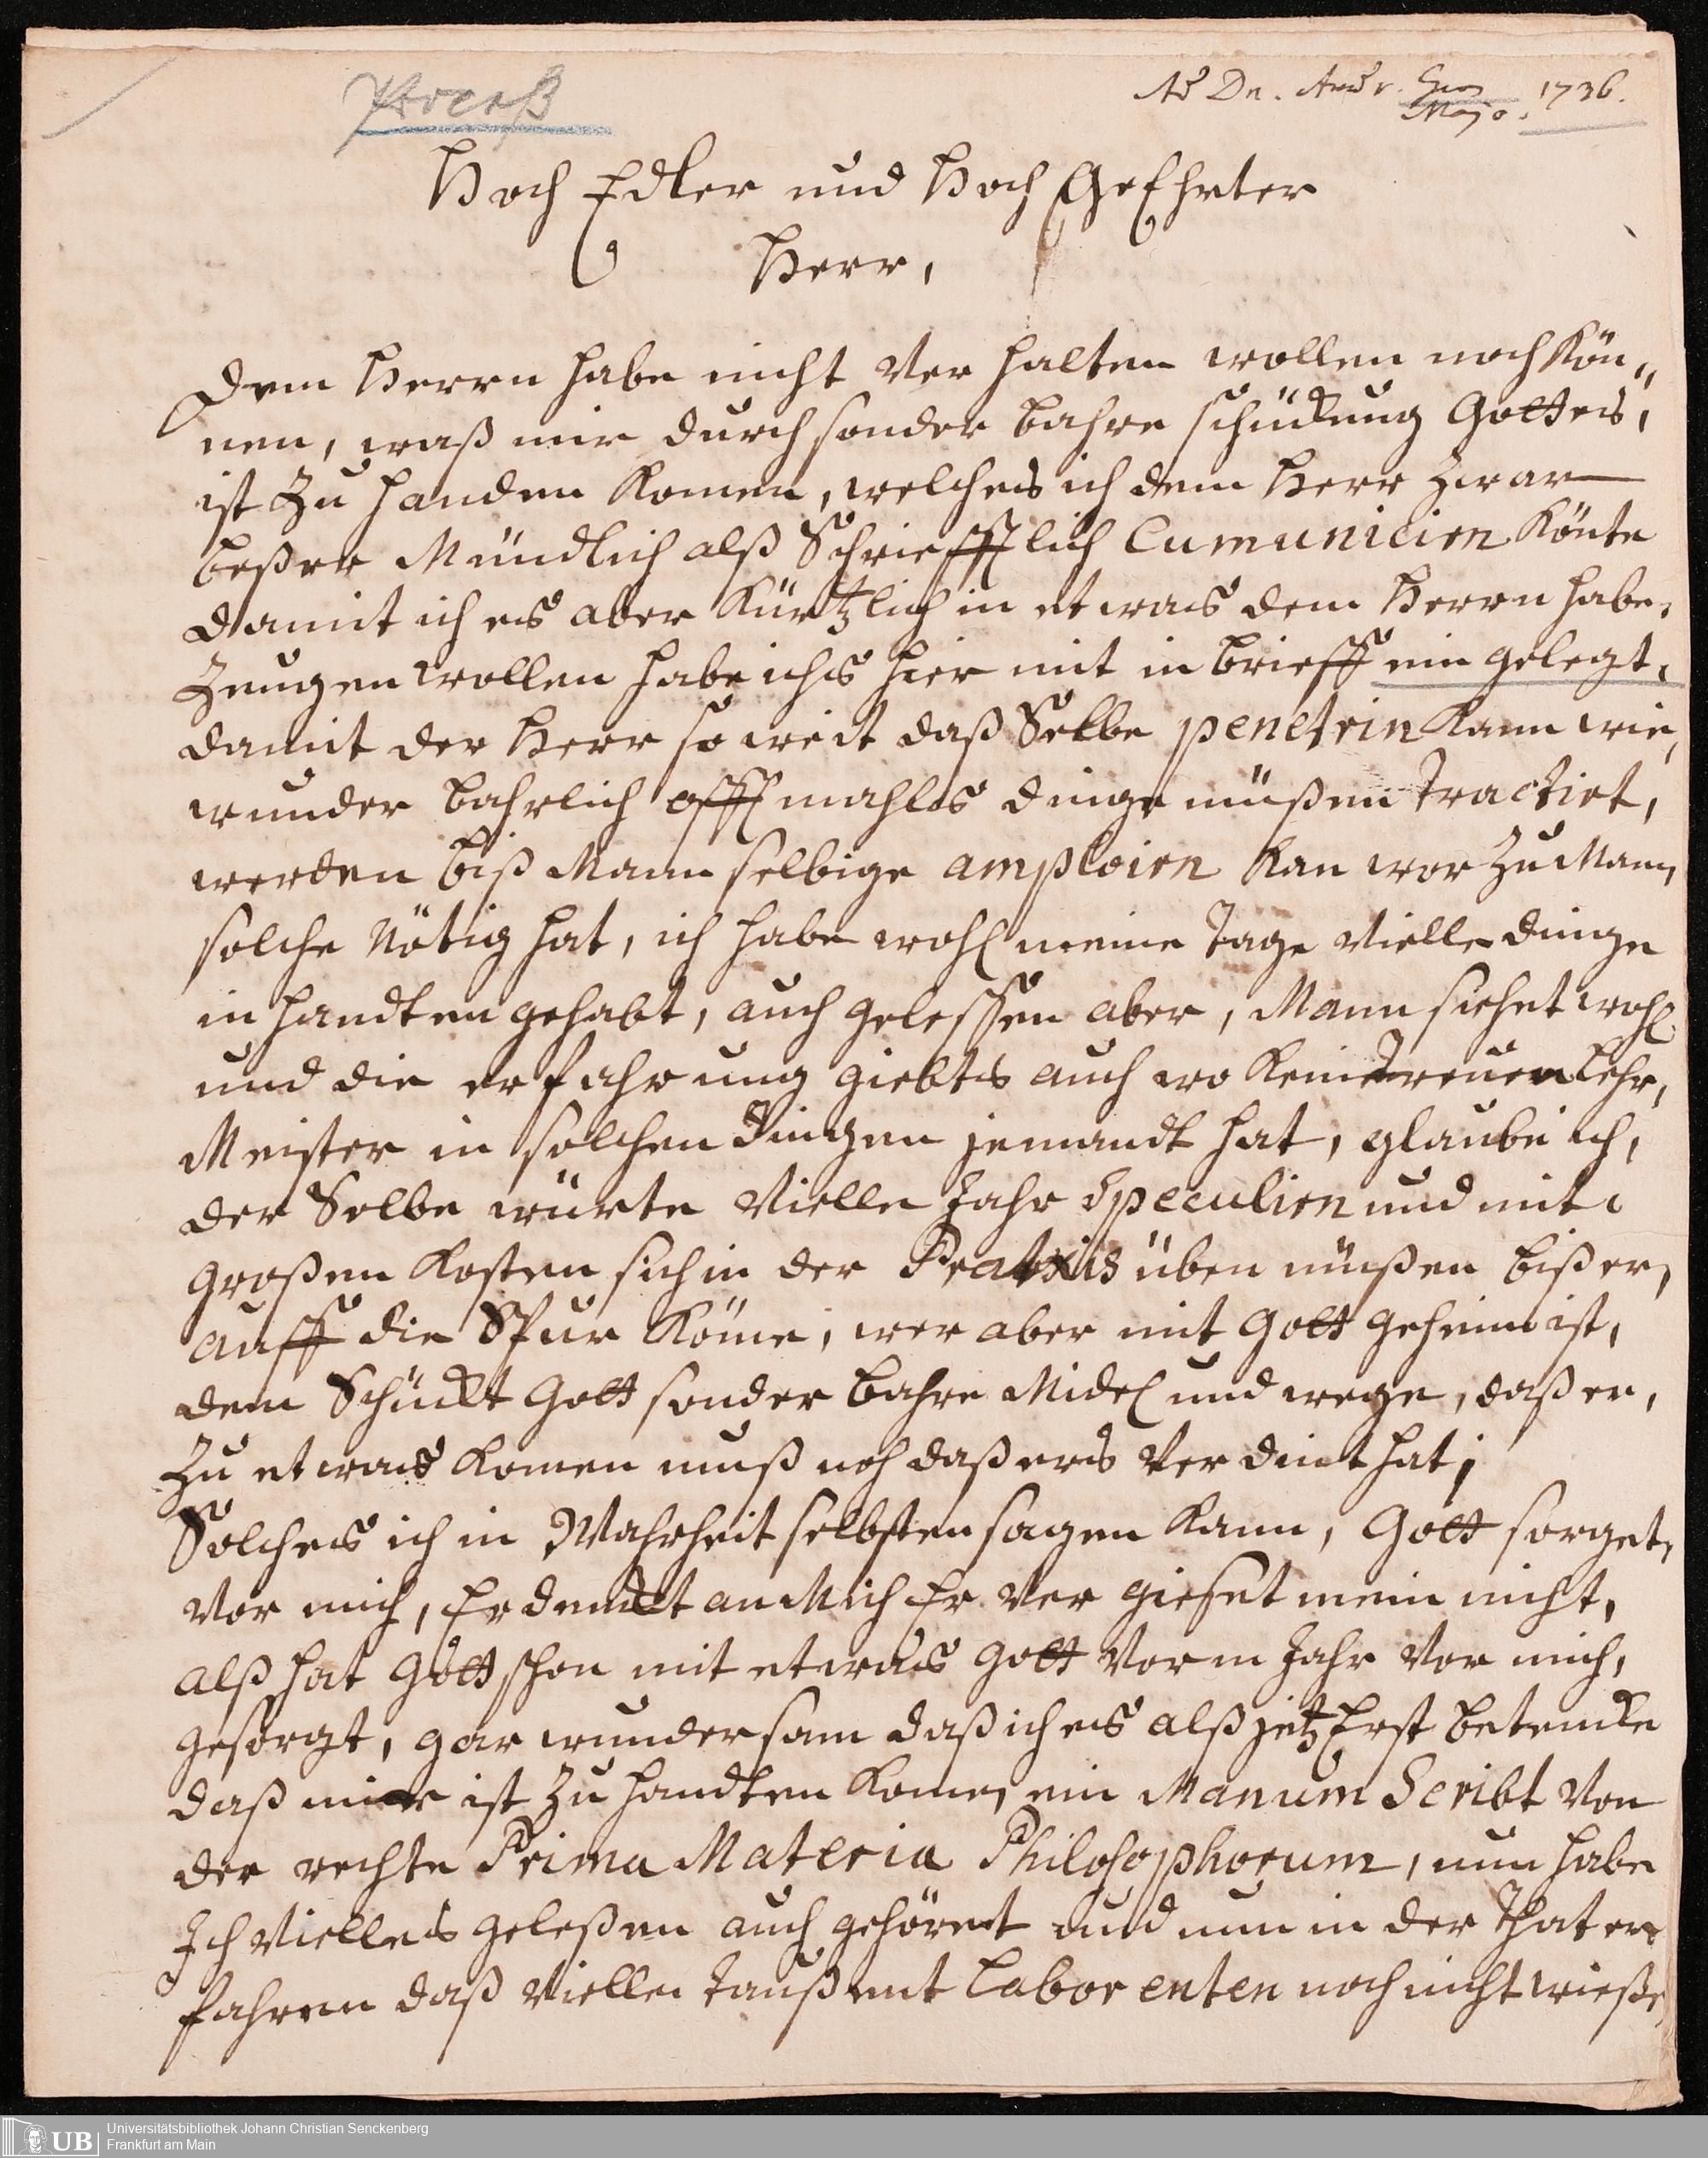 Preuß
Ad Dn. Andr. 1736.
Majo.
Hoch Edler und Hoch GeEhrter
Herr,
Dem Herrn habe nicht Ver halten wollen noch Kön„
nen, waß mir durch sonder bahre schückung Gottes,
ist Zu handen Komen, welches ich dem Herr zwar
beßer Mündlich alß Schriefftlich Cumunicirn Könte
damit ich es aber Kürtzlich in et was dem Herrn habe,
Zeugen wollen habe ichs hier mit in brieff ein gelegt,
damit der Herr so weit daß Selbe penetrin Kann wie,
wunder bahrlich offt mahls dinge müßen tractirt,
werden biß Mann selbige amploirn Kan wor Zu Mann,
solche Nötig hat, ich habe wohl meine Tage Vielle dinge
in handten gehabt, auch gelessen aber, Mann siehet wohl
und die er fahr ung giebts auch wo Kein treuen Lehr,
Meister in solchen Dingen jemandt hat, glaube ich,
der Selbe würte Vielle Jahr Speculirn und mit,
großen Kosten sich in der Pratxis üben müßen biß er,
auff die Spur Köme, wer aber mit Gott geheim ist,
dem Schückt Gott sonder bahre Midel und wege, daß er,
Zu et was Komen muß noh daß ers Ver dint hat;
Solches ich in Wahrheit selbsten sagen Kann, Gott sorget,
Vor mich, Er denckt an Mich Er Ver gieset mein nicht,
alß hat Gott schon mit et was Gott Vor m Jahr Vor mich,
gesorgt, gar wunder sam daß ich es alß jetz Erst betencke
daß mier ist Zu handten Kome, ein Manum Scribt Von
der rechte Prima Materia Philosophorum, nun habe
Ich Vielles geleßen auch gehöret und nun in der That er
fahren daß Vielle taußent Labor enten noch nicht wieße,
Universitätsbibliothek Johann Christian Senckenberg
UB Frankfurt am Main